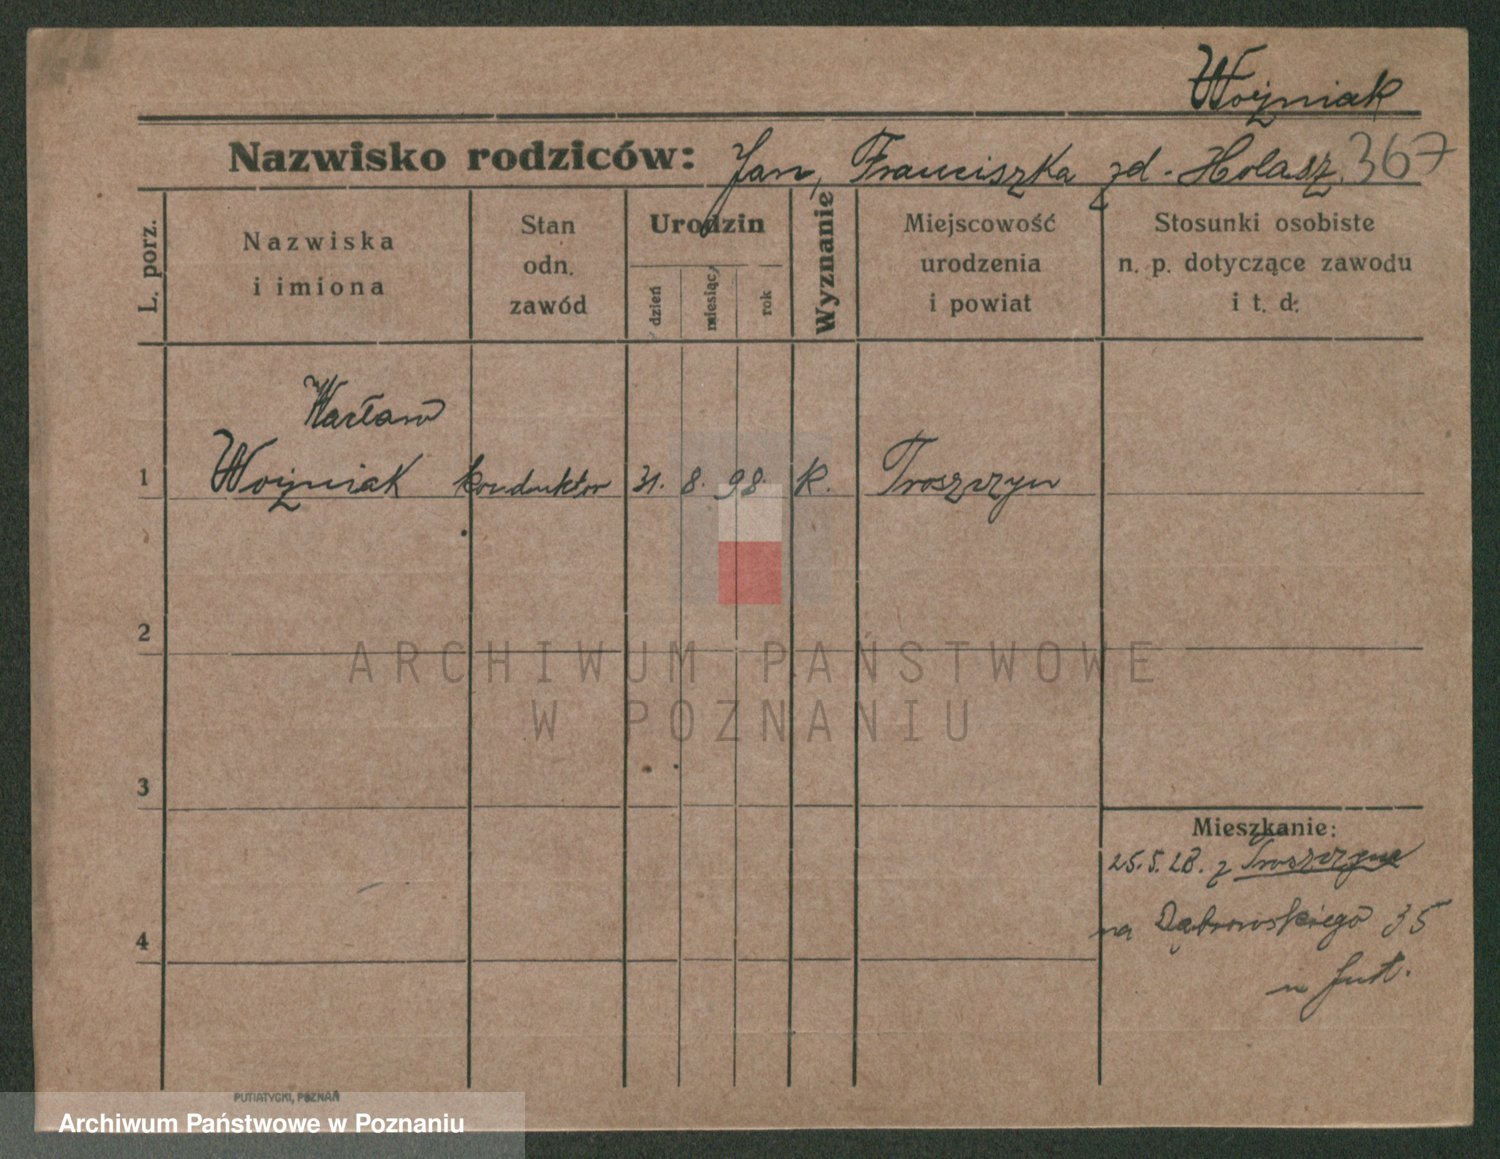 Woźniak
Nazwisko rodziców: Jan, Franciszka zd. Holasz 367
L. porz.
Nazwiska
i imiona
Stan
odn.
zawód
Urodzin
dzień
miesiąc
rok
Wyznanie
Miejscowość
urodzenia
i powiat
Stosunki osobiste
n. p. dotyczące zawodu
i t. d.
Wacław
1 Woźniak konduktor 31. 8. 98. R. Troszczyn
2
3
4
Mieszkanie:
25.5.28. z Troszczyna
na Dąbrowskiego 35
PUTIATYCKI, POZNAŃ
ARCHIWUM PAŃSTWOWE
W POZNANIU
Archiwum Państwowe w Poznaniu